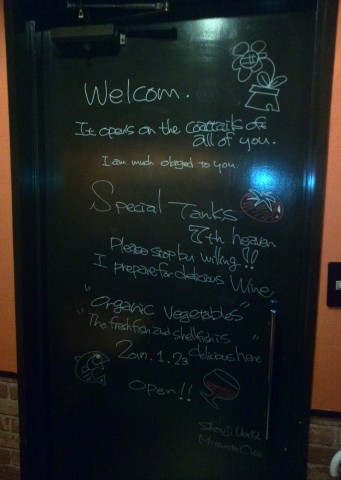 Welcom.
It opens on the coattails of
all of you.
I am much obliged to you.
Special Tanks
7th heaven
Please stop by willing!!
I prepare for delicious Wine,
"Organic Vegetables"
The fresh fish and shellfish is
delicious here
1.23
Open!!